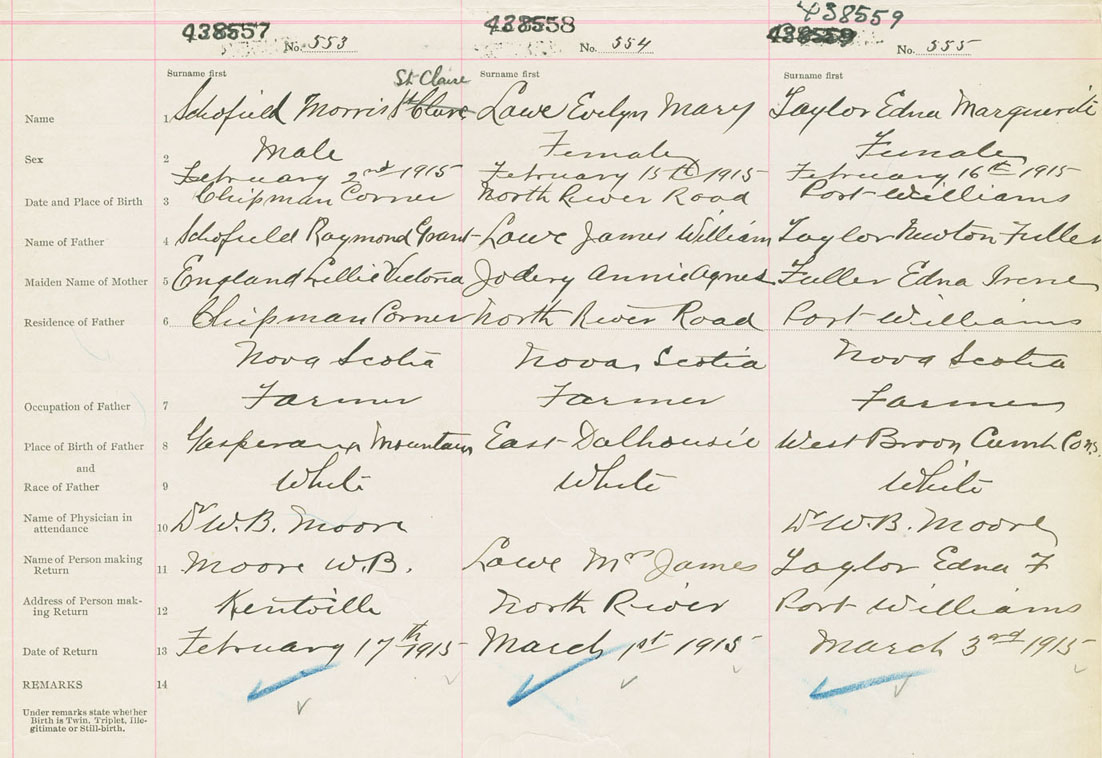 438557 438558 438559
438559
No. 553 No. 554 No. 555
Surname first Surname first Surname first
St. Claire
Name 1 Schofield Morris Lowe Evelyn Mary Taylor Edna Marguerite
Sex 2 Male Female Female
February 2nd 1915 February 15th 1915 February 16th 1915
Date and Place of Birth 3 Chipman Corner North River Road Port Williams
Name of Father 4 Schofield Raymond Grant Lowe James William Taylor Newton Fuller
Maiden Name of Mother 5 England Lillie Victoria Jodery Annie Agnes Fuller Edna Irene
Residence of Father 6 Chipman Corner North River Road Port Williams
Nova Scotia Nova Scotia Nova Scotia
Occupation of Father 7 Farmer Farmer Farmer
Place of Birth of Father 8 Mountain East Dalhousie West Cumb
and
Race of Father 9 White White White
Name of Physician in
attendance 10 Dr W. B. Moore Dr W. B. Moore
Name of Person making
Return 11 Moore W. B. Lowe Mrs James Taylor Edna F
Address of Person mak-
ing Return 12 Kentville North River Port Williams
Date of Return 13 February 17th 1915 March 1st 1915 March 3rd 1915
REMARKS 14
Under remarks state whether
Birth is Twin, Triplet, Ille-
gitimate or Still-birth.